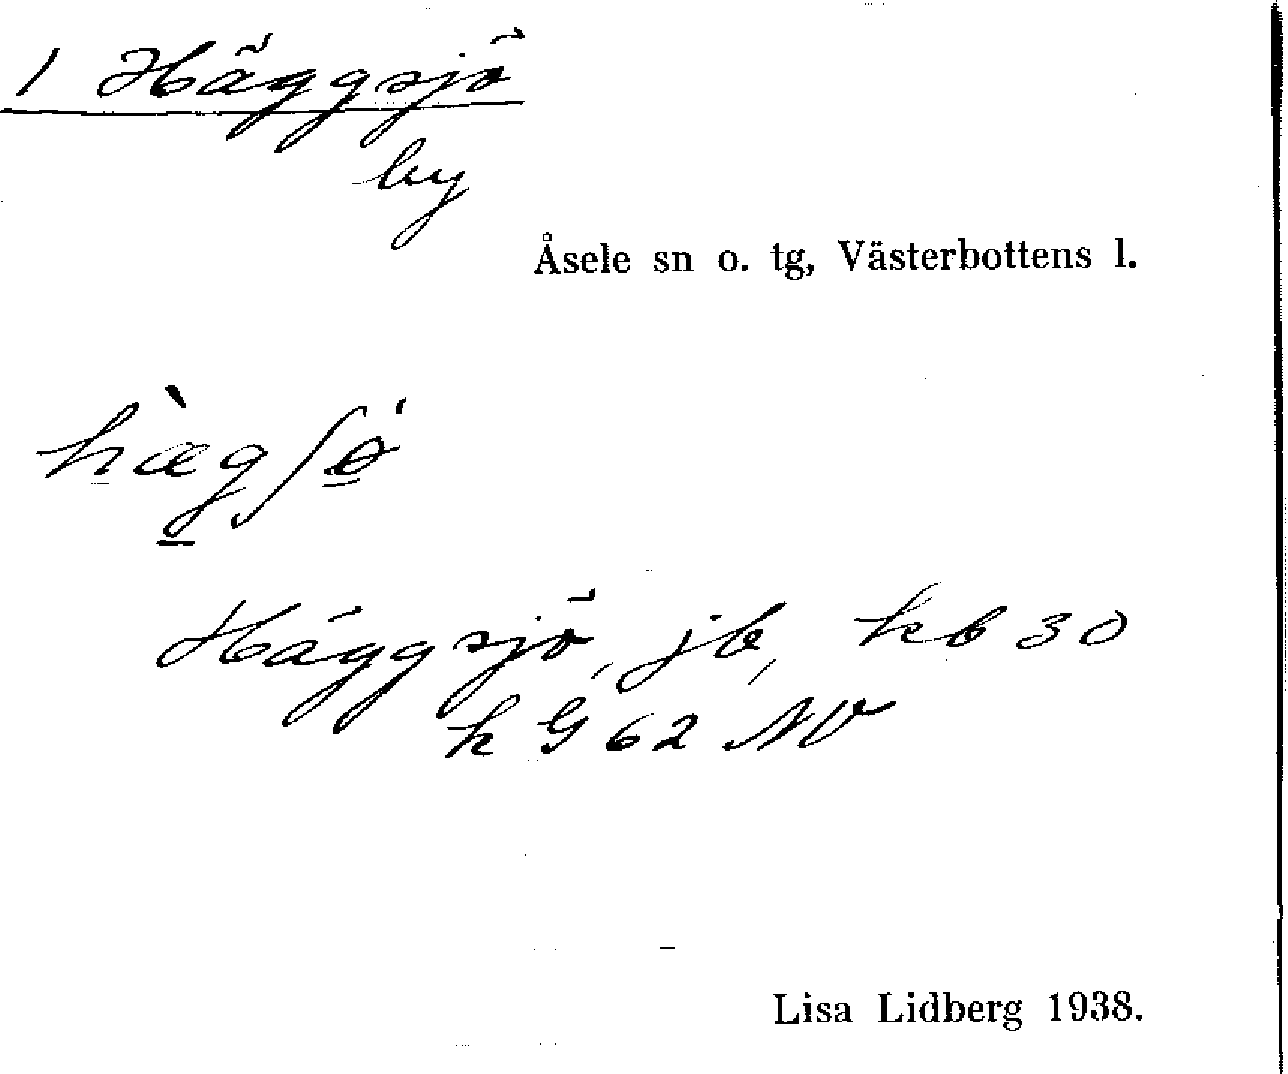 1 Häggsjö
by
Åsele sn o. tg, Västerbottens l.
hæ̀gʃø̍
Häggsjö, jb, kb 30
k G 62 NV
Lisa Lidberg 1938.